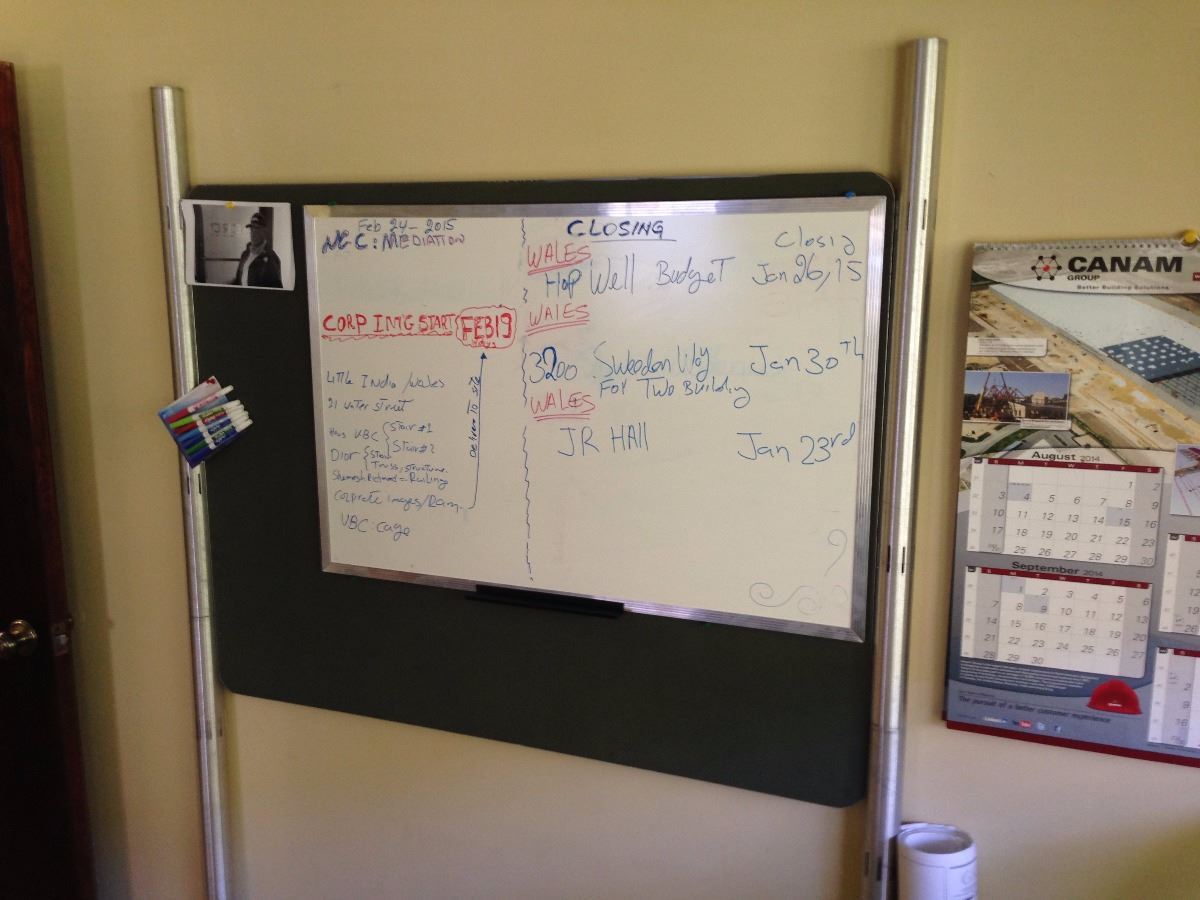 Feb 24 - 2015
NGC: MEDIATION
CORP IMG START FEB 19
Little India / Wales
21 Water Street
Haus VBC Stair #1
Stair #2
Dior Stair
Truss, structure
= Railing
Corprete Images/
VBC: Cage
to site
CLOSING
Closig
WALES
Hop Well Budget Jan 26/15
WALES
3200 Sweden Way Jan 30TH
For Two Building
WALES
JR HAll Jan 23rd
CANAM
GROUP
Better Building Solutions
August 2014
S M T W T F S
1 2
3 4 5 6 7 8 9
10 11 12 13 14 15 16
17 18 19 20 21 22 23
25 26 27 28 29 30
September 2014
S M T W T F S
1 2 3 4 5 6
7 8 9 10 11 12 13
14 15 16 17 18 19 20
21 22 23 24 25 26 27
28 29 30
The pursuit of a better customer experience